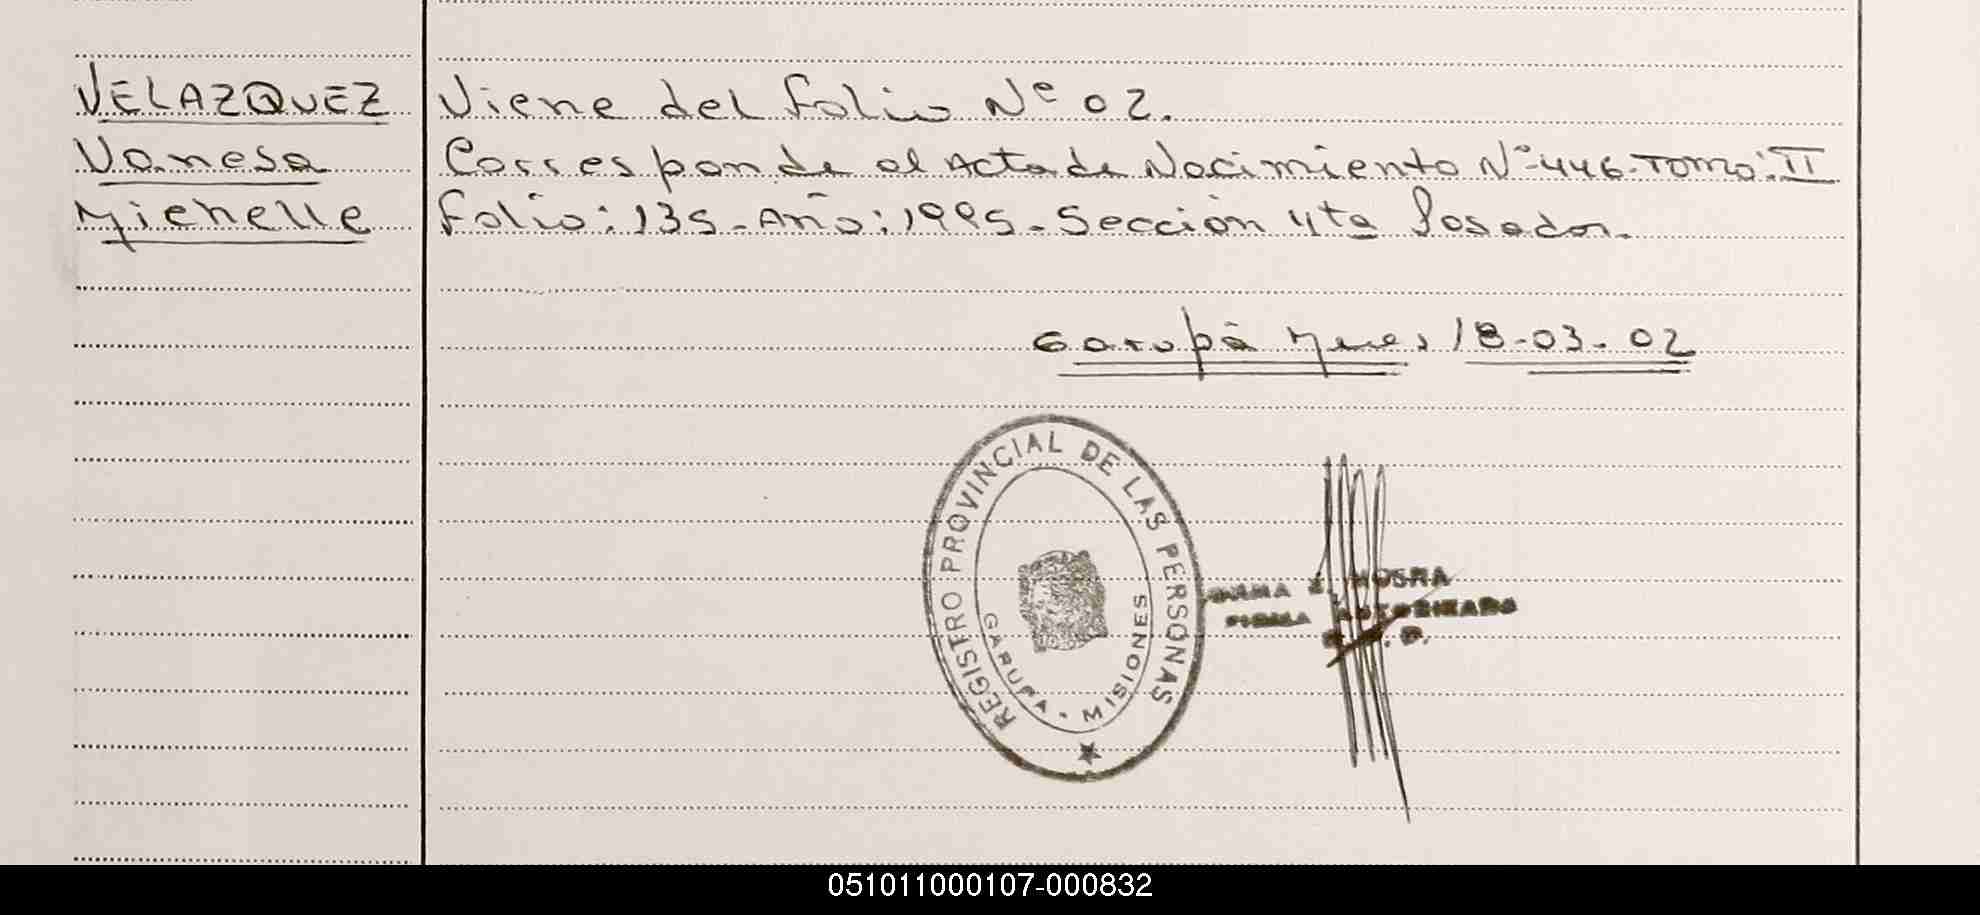 VELAZQUEZ
Vanesa
Michelle
Viene del folio Nº 02.
Corresponde al Acta de Nacimiento Nº 446. Tomo: II
folio: 135 - Año: 1995 - Sección 4ta Posadas.
Garupá Mnes, 18-03-02
REGISTRO PROVINCIAL DE LAS PERSONAS
GARUPA - MISIONES
FIRMA AUTORIZADA
051011000107-000832